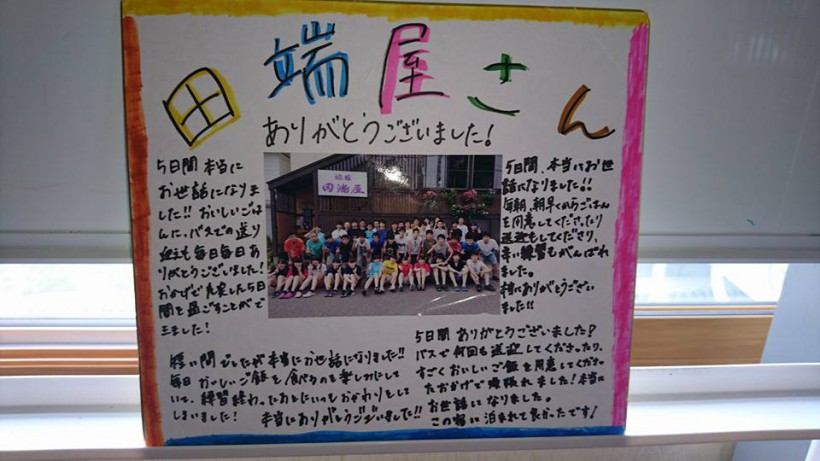 田端屋さん
ありがとうございました!
5日間本当に
お世話になりま
した!! おいしいごは
んに、バスでの送り
迎えも毎日毎日あ
りがとうございました!
おかげで充実した5日
間を過ごすことがで
きました!
旅館
田端屋
5日間、本当にお世
話になりました!!
毎朝、朝早くからごはん
を用意してくださったり
送迎もしてくださり、
辛い練習もがんばれ
ました。
本当にありがとうござい
ました!!
短い間でしたが本当にお世話になりました!!
毎日おいしいご飯を食べるのを楽しみにして
いて、練習終わったあとにいつもおかわりをして
しまいました! 本当にありがとうございました!!
5日間ありがとうございました!
バスで何回も送迎してくださったり、
すごくおいしいご飯を用意してくださっ
たおかげで頑張れました!本当に
お世話になりました。
この宿に泊まれて良かったです!